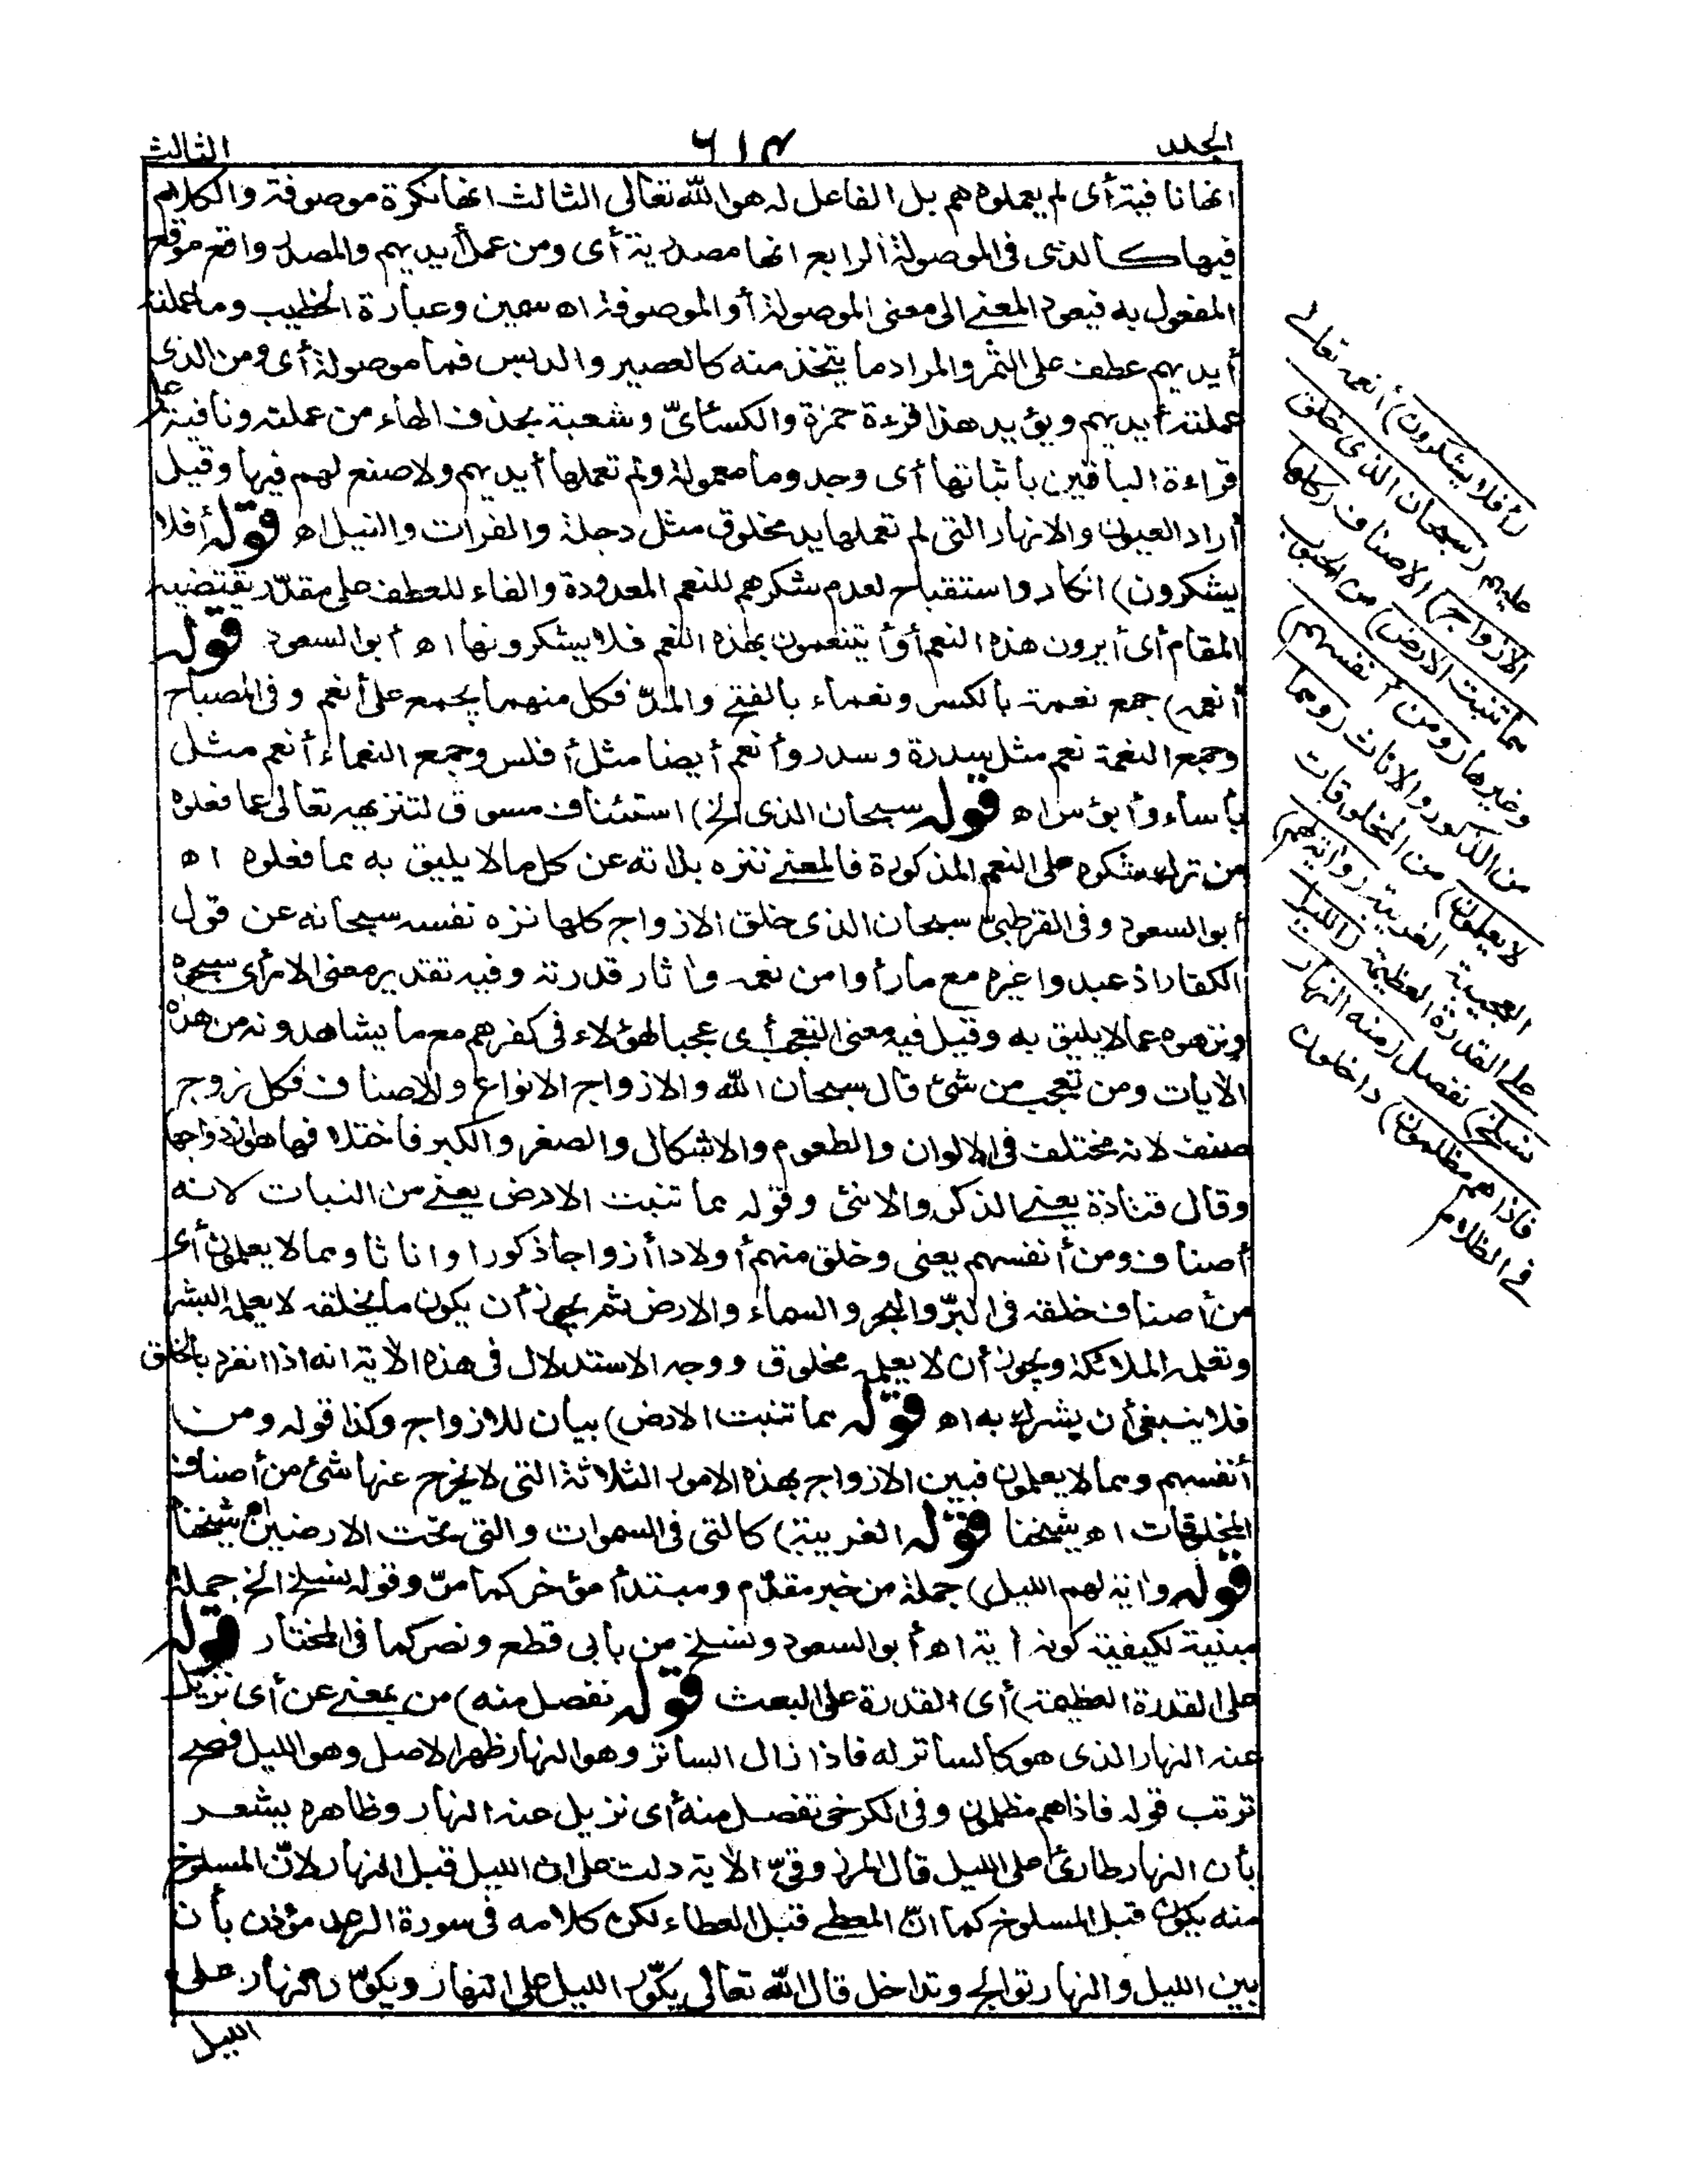 الجلد ٦١٣ الثالث
انها نافية أى لم يعملوه هم بل الفاعل له هو الله تعالى الثالث انها نكرة موصوفة والكلام
فيها كالذى فى الموصولة الرابع انها مصدرية أى ومن عمل أيديهم والمصدر واقع موقع
المفعول به فيعود المعنى الى معنى الموصولة أو الموصوفة اه سمين وعبارة الخطيب وما عملته
أيديهم عطف على الثمر والمراد ما يتخذ منه كالعصير والدبس فما موصولة أى ومن الذى
عملته أيديهم ويؤيد هذا قرءة حمزة والكسائىّ وشعبة بحذف الهاء من عملته ونافية على
قراءة الباقين باثباتها أى وجدوما معمولة ولم تعملها أيديهم ولا صنع لهم فيها وقيل
أراد العيون والانهار التى لم تعملها يد مخلوق مثل دجلة والفرات والنيل اه قوله أفلا
يشكرون) انكار واستقباح لعدم شكرهم للنعم المعدودة والفاء للعطف على مقدّر يقتضيه
المقام أى أيرون هذه النعم أو أيتنعمون بهذه النعم فلا يشكرونها اه أبو السعود قوله
أنعمه) جمع نعمة بالكسر ونعماء بالفتح والمدّ فكل منهما يجمع على أنعم وفى المصباح
وجمع النعمة نعم مثل سدرة وسدر وأنعم أيضا مثل أفلس وجمع النعماء أنعم مثل
بأساء وأبؤس اه قوله سبحان الذى الخ) استئناف مسوق لتنزيهه تعالى عما فعلوه
من ترك شكره على النعم المذكورة فالمعنى تنزه بذاته عن كل ما لا يليق به مما فعلوه اه
أبو السعود وفى القرطبىّ سبحان الذى خلق الازواج كلها نزه نفسه سبحانه عن قول
الكفار اذ عبدوا غيره مع ما رأوا من نعمه واثار قدرته وفيه تقدير معنى الامر أى سبحوه
ونزهوه عما لا يليق به وقيل فيه معنى التعجب أى عجبا لهؤلاء فى كفرهم مع ما يشاهدونه من هذه
الآيات ومن تعجب من شئ قال سبحان الله والازواج الانواع والاصناف فكل زوج
صنف لانه مختلف فى الالوان والطعوم والاشكال والصغر والكبر فاختلافها هو ازدواجها
وقال قتادة يعنى الذكر والانثى وقوله مما تنبت الارض يعنى من النبات لانه
أصناف ومن أنفسهم يعنى وخلق منهم أولادا أزواجا ذكورا واناثا ومما لا يعلمون أى
من أصناف خلقه فى البرّ والبحر والسماء والارض ثم يجوز أن يكون ما يخلقه لا يعلمه البشر
وتعلمه الملائكة ويجوز أن لا يعلمه مخلوق ووجه الاستدلال فى هذه الآية انه اذا انفرد بالخلق
فلا ينبغى أن يشرك به اه قوله مما تنبت الارض) بيان للازواج وكذا قوله ومن
أنفسهم ومما لا يعلمون فبين الازواج بهذه الامور الثلاثة التى لا يخرج عنها شئ من أصناف
المخلوقات اه شيخنا قوله الغريبة) كالتى فى السموات والتى تحت الارضين اه شيخنا
قوله واية لهم الليل) جملة من خبر مقدّم ومبتدأ مؤخر كما مرّ وقوله نسلخ الخ جملة
مبنية لكيفية كونه اية اه أبو السعود ونسلخ من بابى قطع ونصر كما فى المختار قوله
على القدرة العظيمة) أى القدرة على البعث قوله نفصل منه) من بمعنى عن أى نزيل
عنه النهار الذى هو كالساتر له فاذا زال الساتر وهو النهار ظهر الاصل وهو الليل فصح
ترتب قوله فاذاهم مظلمون وفى الكرخى نفصل منه أى نزيل عنه النهار وظاهره يشعر
بأن النهار طارئ على الليل قال المرزوقىّ الآية دلت على ان الليل قبل النهار لانّ المسلوخ
منه يكون قبل المسلوخ كما انّ المعطى قبل العطاء لكن كلامه فى سورة الرعد مؤذن بأن
بين الليل والنهار توالج وتداخل قال الله تعالى يكوّر الليل على النهار ويكوّر النهار على
الليل
(أفلا يشكرون) أنعمه تعالى
عليهم (سبحان الذى خلق
الازواج) الاصناف (كلها
مما تنبت الارض) من الحبوب
وغيرها (ومن أنفسهم)
من الذكور والاناث (ومما
لا يعلمون) من المخلوقات
العجيبة الغريبة (واية لهم)
على القدرة العظيمة (الليل
نسلخ) نفصل (منه النهار
فاذاهم مظلمون) داخلون
فى الظلام